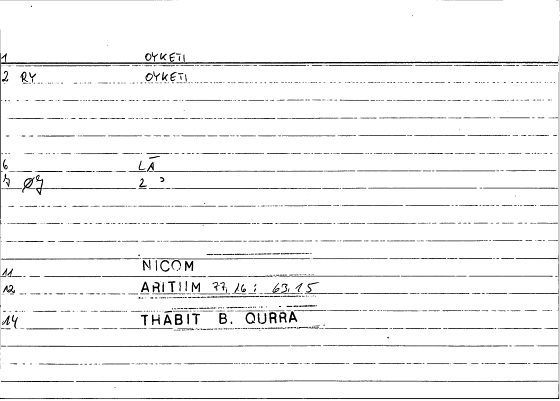 1 OYKETI
2 RY OYKETI
6 LĀ
7 ØJ 2 ɔ
11 NICOM
12 ARITIIM 77,16 : 63,15
14 THĀBIT B. QURRA